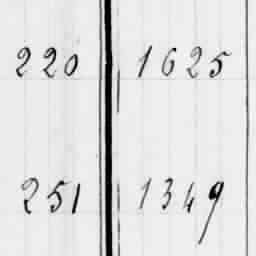 220 1625
251 1349